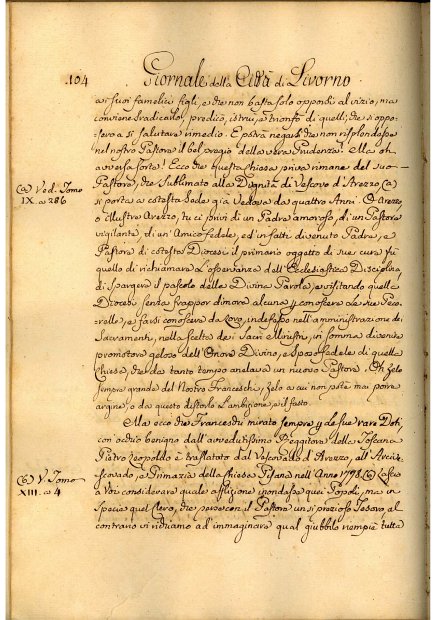 104
Giornale della Città di Livorno
ai suoi famelici figli, e che non basta solo opporsi al vizio, ma
conviene sradicarlo, predicò, istruì, e trionfò di quelli, che si oppo-
sero a sì salutare rimedio. E potrà negarsi che non risplendesse
nel nostro Pastore il bel pregio della vera Prudenza! Ma oh
avversa sorte! Ecco che questa chiesa priva rimane del suo
(a) Ved. Tomo
IX. a 286
Pastore, che sublimato alla Dignità di Vescovo d'Arezzo (a)
si porta a cotesta Sede già Vedova da quattro Anni. O Arezzo
o Illustre Arezzo, tu ci privi di un Padre amoroso, di un Pastore
vigilante, di un'Amico fedele, ed in fatti divenuto Padre, e
Pastore di cotesta Diocesi il primario oggetto di sue cure fù
quello di richiamare l'osservanza dell'Ecclesiastica Disciplina,
di spargere il pascolo della Divina Parola, e visitando quella
Diocesi senza frappor dimora alcuna p conoscere le sue Peco-
relle, e farsi conoscere da Loro, indefesso nell'amministrazione dei
Sacramenti, nella scelta dei Sacri Ministri, in somma divenne
promotore geloso dell'Onore Divino, e Sposo fedele di quella
Chiesa, che da tanto tempo anelava un nuovo Pastore. Oh zelo
sempre grande del Nostro Franceschi, zelo a cui non potè mai porre
argine, o da questo distorlo l'ambizione, e il fasto.
Ma ecco che Franceschi mirato sempre p le sue rare Doti,
con occhio benigno dall'avvedutissimo Reggitore della Toscana
Pietro Leopoldo è traslatato dal Vescovado d'Arezzo, all'Arci-
(b) V. Tomo
XIII. a 4
scovado, e Primazia della Chiesa Pisana nell'Anno 1778. (b) Lascio
a Voi considerare quale afflizione inondasse quei Popoli, ma in
specie quel Clero, che perse con il Pastore un sì prezioso Tesoro, al
contrario vi richiamo ad immaginare qual giubbilo riempiè tutta